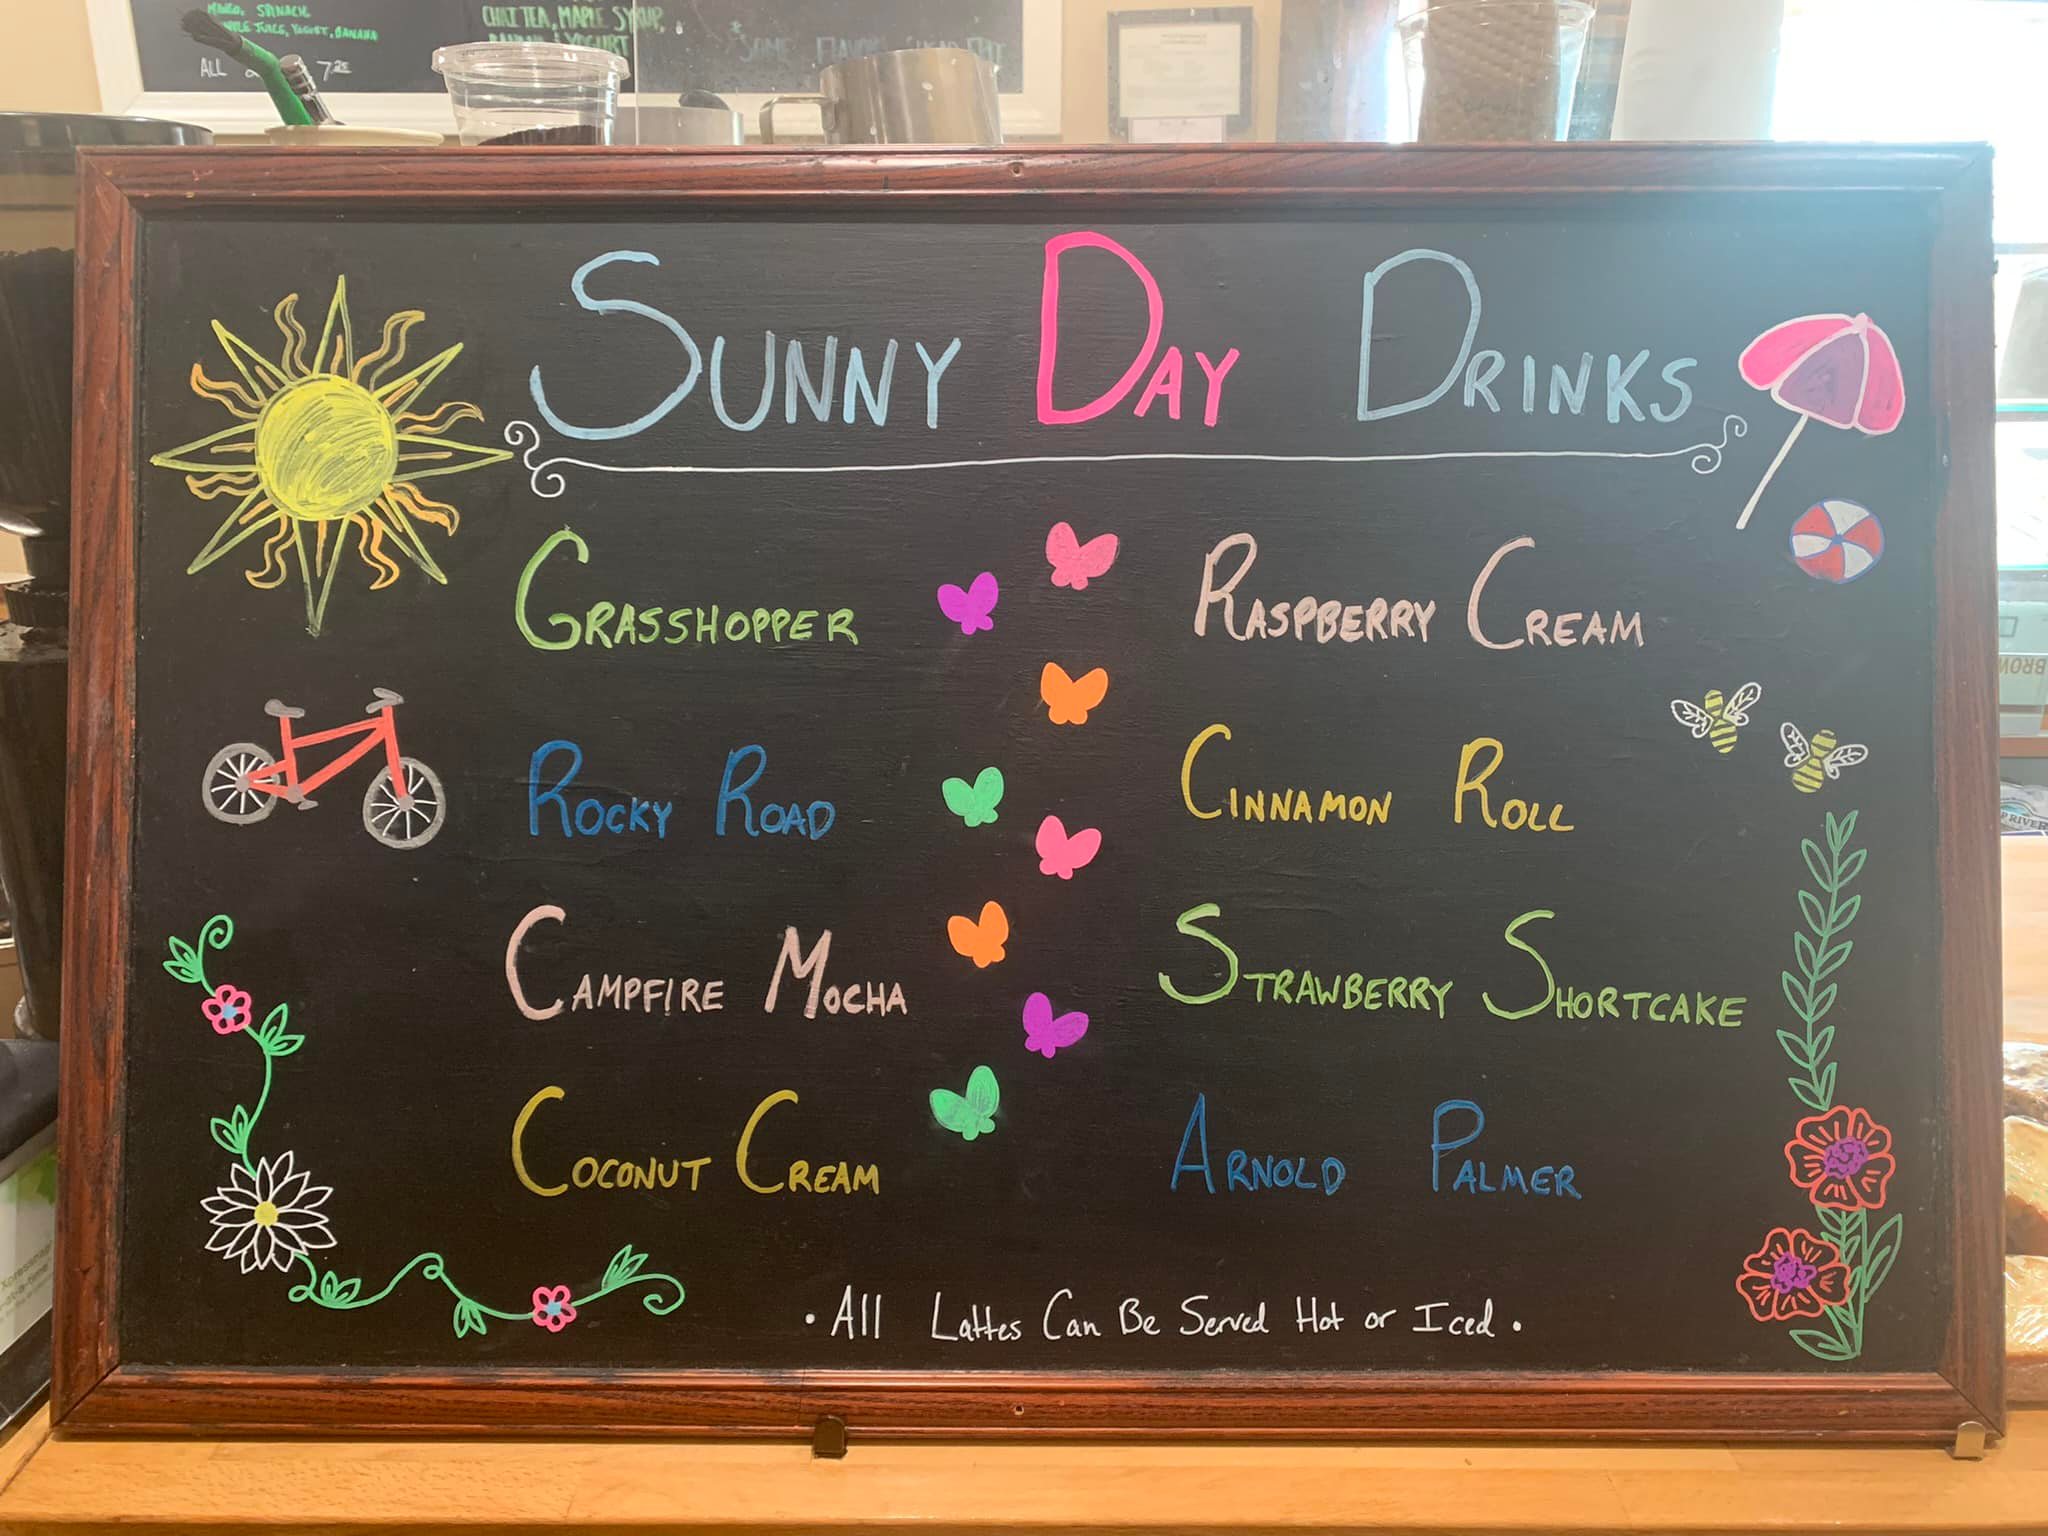 MANGO, SPINACH
JUICE, YOGURT, BANANA
ALL 7.25
CHAI TEA, MAPLE SYRUP,
YOGURT
SOME FLAVORS SUGAR FREE
SUNNY DAY DRINKS
GRASSHOPPER
ROCKY ROAD
CAMPFIRE MOCHA
COCONUT CREAM
RASPBERRY CREAM
CINNAMON ROLL
STRAWBERRY SHORTCAKE
ARNOLD PALMER
• All Lattes Can Be Served Hot or Iced •